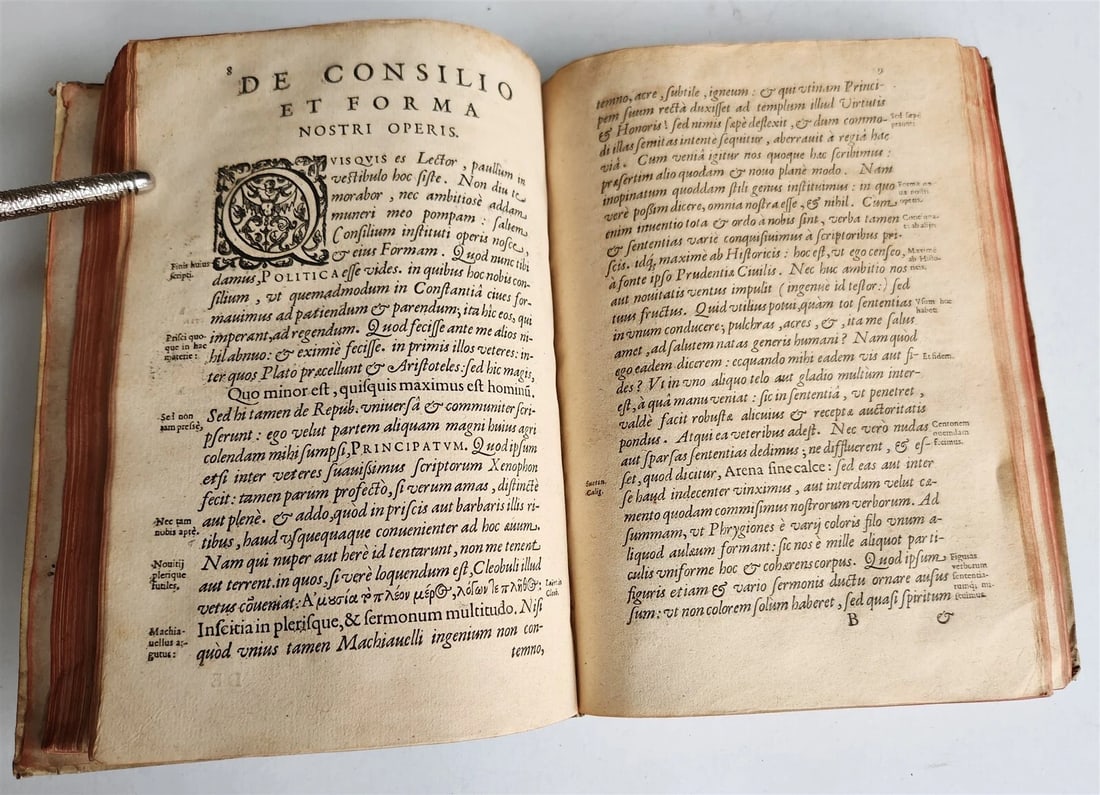 8
DE CONSILIO
ET FORMA
NOSTRI OPERIS.
QVISQVIS es Lector, paullum in
vestibulo hoc siste. Non diu te
morabor, nec ambitiosè addam
muneri meo pompam: saltem
Consilium instituti operis nosce,
& eius Formam. Quod nunc tibi
Finis huius
scripti.
damus, POLITICA esse vides. in quibus hoc nobis con-
silium, vt quemadmodum in Constantiâ ciues for-
mauimus ad patiendum & parendum; ita hic eos, qui
Prisci quo-
que in hac
materie:
imperant, ad regendum. Quod fecisse ante me alios ni-
hil abnuo: & eximiè fecisse. in primis illos veteres: in-
ter quos Plato præcellunt & Aristoteles: sed hic magis,
Quo minor est, quisquis maximus est hominũ.
Sed non
tam presse,
Sed hi tamen de Repub. vniuersâ & communiter scri-
pserunt: ego velut partem aliquam magni huius agri
colendam mihi sumpsi, PRINCIPATVM. Quod ipsum
etsi inter veteres suauissimus scriptorum Xenophon
fecit: tamen parum profecto, si verum amas, distinctè
Nec tam
nobis aptè.
aut plenè. & addo, quod in priscis aut barbaris illis ri-
tibus, haud vsquequaque conuenienter ad hoc æuum.
Nouitij
plerique
futiles.
Nam qui nuper aut herè id tentarunt, non me tenent
aut terrent. in quos, si verè loquendum est, Cleobuli illud
vetus cõueniat: Ἀμουσία τὸ πλέον μέρος, λόγων τε πλῆθος;
Laërt. in
Cleob.
Machia-
uellus ar-
gutus:
Inscitia in plerisque, & sermonum multitudo. Nisi
quòd vnius tamen Machiauelli ingenium non con-
temno,
9
temno, acre, subtile, igneum: & qui vtinam Princi-
pem suum rectà duxisset ad templum illud Virtutis
& Honoris! sed nimis sæpè deflexit, & dum commo-
Sed sæpè
prauus.
di illas semitas intentè sequitur, aberrauit à regiâ hac
viâ. Cum veniâ igitur nos quoque hæc scribimus:
præsertim alio quodam & nouo planè modo. Nam
inopinatum quoddam stili genus instituimus: in quo
Forma no-
ua nostri
operis.
verè possim dicere, omnia nostra esse, & nihil. Cum
enim inuentio tota & ordo à nobis sint, verba tamen
& sententias variè conquisiuimus à scriptoribus pri-
scis. idq; maximè ab Historicis: hoc est, vt ego censeo,
Maximè
ab Histo-
ricis.
à fonte ipso Prudentiæ Ciuilis. Nec huc ambitio nos
aut nouitatis ventus impulit (ingenuè id testor:) sed
tuus fructus. Quid vtilius potui, quàm tot sententias
Vsum hæc
habent
in vnum conducere; pulchras, acres, &, ita me salus
amet, ad salutem natas generis humani? Nam quod
ego eadem dicerem: ecquando mihi eadem vis aut fi-
Et fidem.
des? Vt in vno aliquo telo aut gladio multum inter-
est, à quâ manu veniat: sic in sententiâ, vt penetret,
valdè facit robustæ alicuius & receptæ auctoritatis
pondus. Atqui ea veteribus adest. Nec verò nudas
Centonem
quemdam
fecimus.
aut sparsas sententias dedimus; ne diffluerent, & es-
set, quod dicitur, Arena sine calce: sed eas aut inter
Sueton.
Calig.
se haud indecenter vinximus, aut interdum velut cæ-
mento quodam commisimus nostrorum verborum. Ad
summam, vt Phrygiones è varij coloris filo vnum a-
liquod aulæum formant: sic nos è mille aliquot parti-
culis vniforme hoc & cohærens corpus. Quod ipsum
Figuras
verborum
sententia-
rumq;
figuris etiam & vario sermonis ductu ornare ausus
sum: vt non colorem solum haberet, sed quasi spiritum
B
&